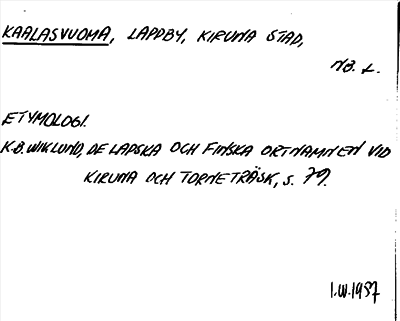 KAALASVUOMA, LAPPBY, KIRUNA STAD,
NB. L.
ETYMOLOGI.
K.B. WIKLUND, DE LAPSKA OCH FINSKA ORTNAMNEN VID
KIRUNA OCH TORNETRÄSK, S. 79.
I.W. 1957